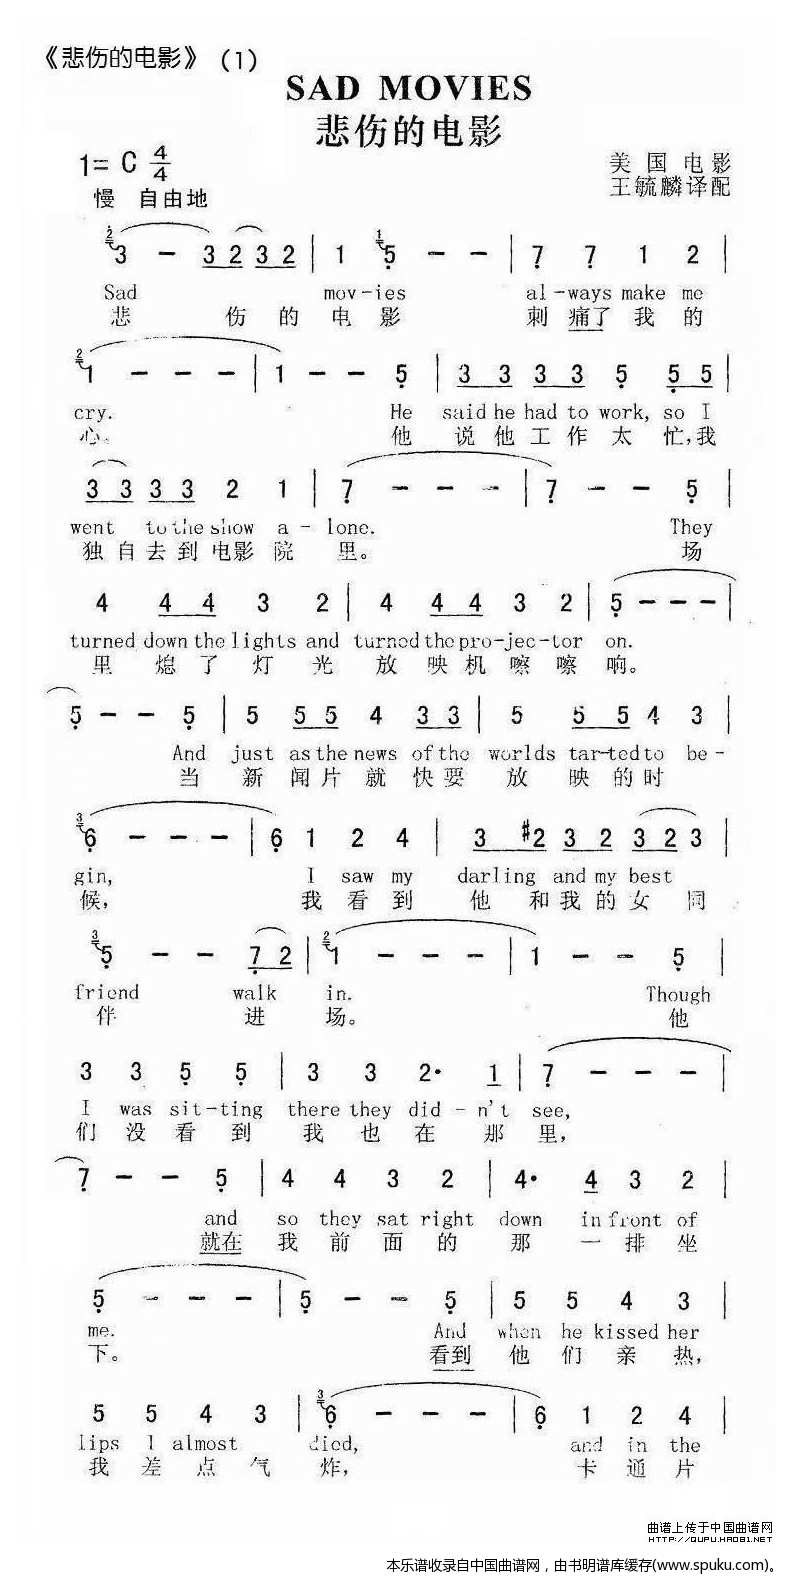 《悲伤的电影》 (1)
SAD MOVIES
悲伤的电影
1= C 4/4
美国电影
慢 自由地
王毓麟译配
2 3 — 3 2 3 2 | 1 1 5 — — | 7 7 1 2 |
Sad mov-ies al-ways make me
悲 伤 的 电 影 刺 痛了 我 的
2 1 — — — | 1 — — 5 | 3 3 3 3 5 5 5 |
cry. He said he had to work, so I
心。 他 说 他 工 作 太 忙,我
3 3 3 3 2 1 | 7 — — — | 7 — — 5 |
went to the show a-lone. They
独 自 去 到 电影 院 里。 场
4 4 4 3 2 | 4 4 4 3 2 | 5 — — — |
turned down the lights and turned the pro-jec-tor on.
里 熄 了 灯 光 放 映 机 嚓 嚓 响。
5 — — 5 | 5 5 5 4 3 3 | 5 5 5 4 3 |
And just as the news of the worlds tar-ted to be-
当 新 闻 片 就 快 要 放 映 的 时
3 6 — — — | 6 1 2 4 | 3 #2 3 2 3 2 3 |
gin, I saw my darling and my best
候, 我 看 到 他 和 我 的 女 同
3 5 — — 7 2 | 2 1 — — — | 1 — — 5 |
friend walk in. Though
伴 进 场。 他
3 3 5 5 | 3 3 2· 1 | 7 — — — |
I was sit-ting there they did-n't see,
们 没 看 到 我 也 在 那 里,
7 — — 5 | 4 4 3 2 | 4· 4 3 2 |
and so they sat right down in front of
就在 我 前 面 的 那 一 排 坐
5 — — — | 5 — — 5 | 5 5 4 3 |
me. And when he kissed her
下。 看到 他 们 亲 热,
5 5 4 3 | 3 6 — — — | 6 1 2 4 |
lips I almost died, and in the
我 差 点 气 炸, 卡 通 片
曲谱上传于中国曲谱网
HTTP://QUPU.HAO81.NET
本乐谱收录自中国曲谱网，由书明谱库缓存(www.spuku.com)。